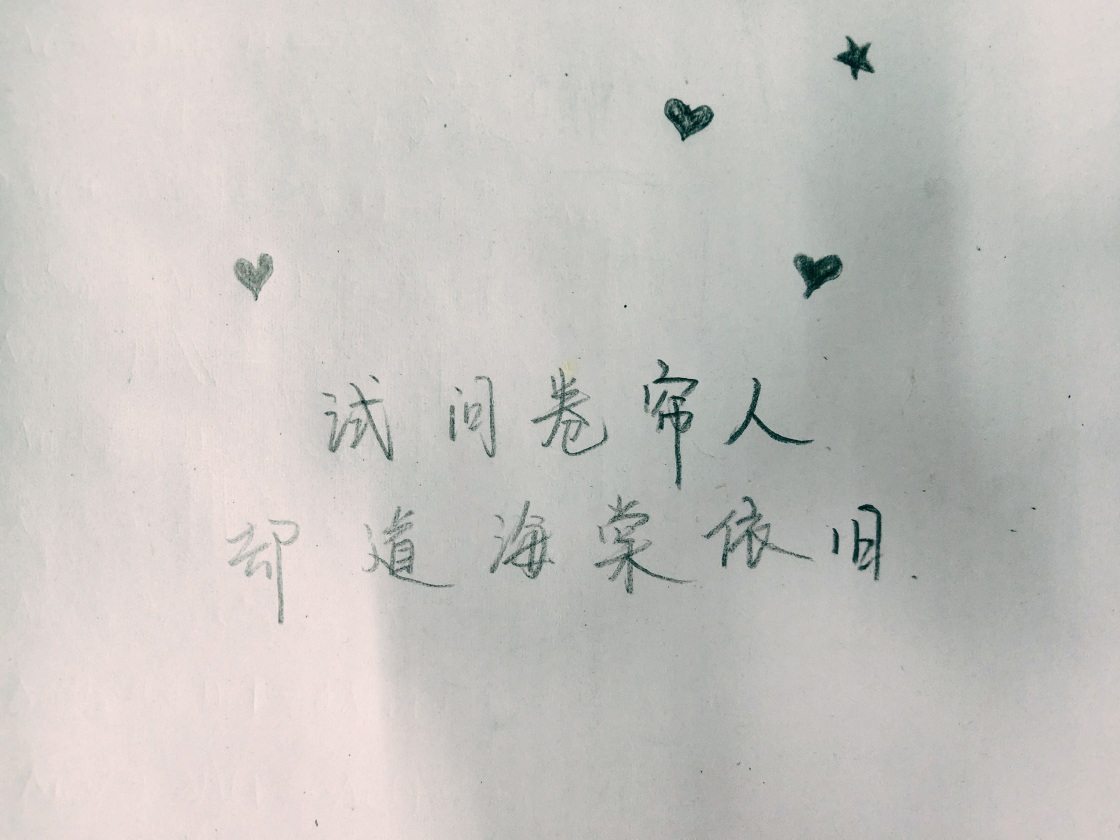 试问卷帘人
却道海棠依旧.